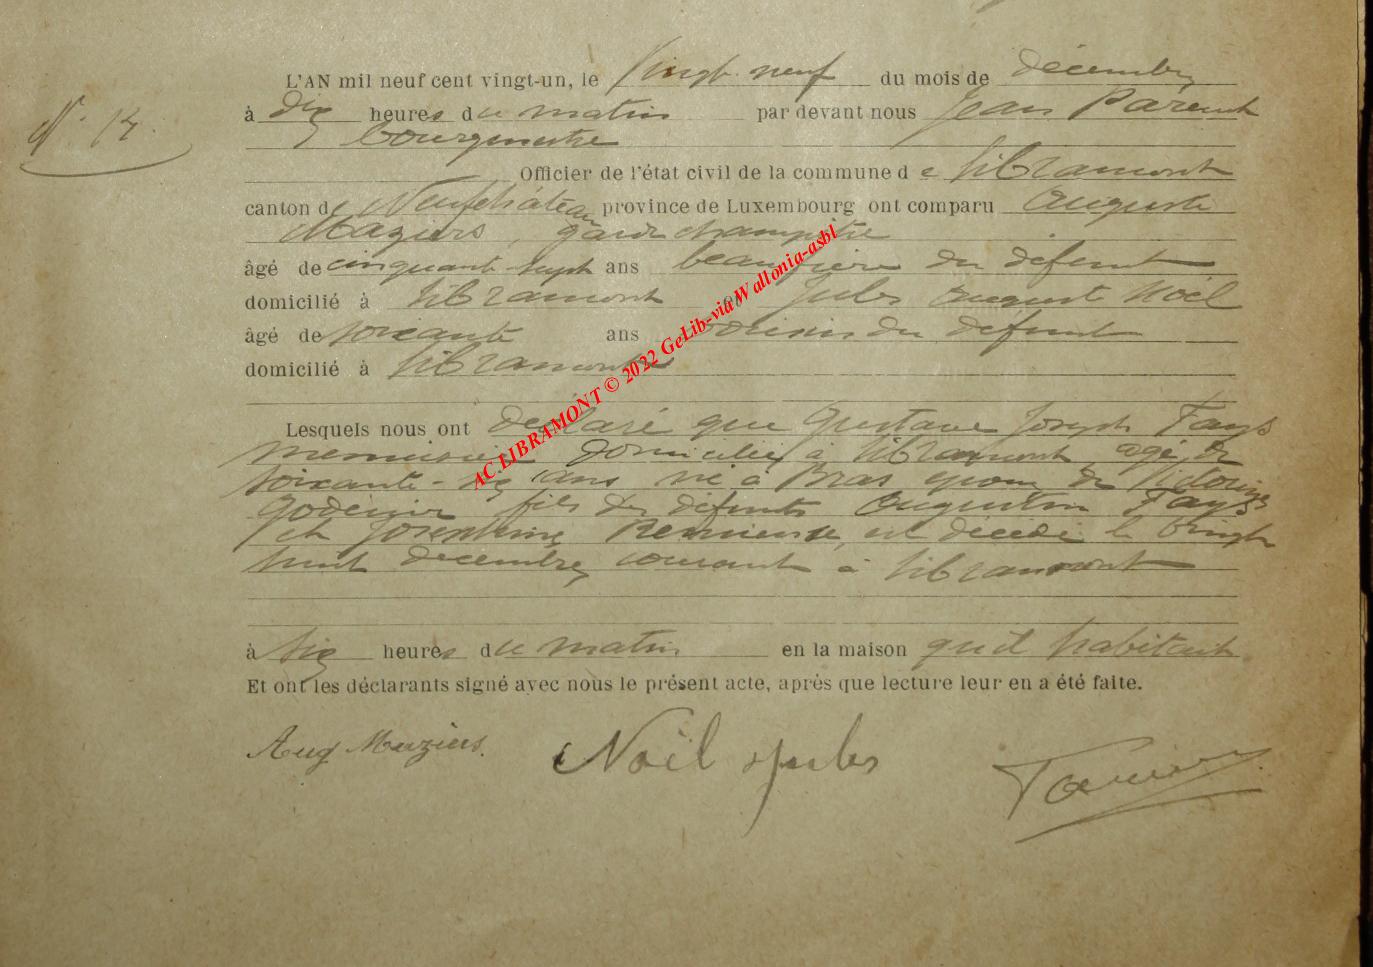 N° 14.
L'AN mil neuf cent vingt-un, le Vingt-neuf du mois de décembre
à dix heures du matin par devant nous Jean Parent
bourgmestre
Officier de l'état civil de la commune de Libramont
canton de Neufchâteau province de Luxembourg ont comparu Auguste
Maziers, garde champêtre
âgé de cinquante-sept ans beau-frère du défunt
domicilié à Libramont et Jules Auguste Noël
âgé de soixante ans voisin du défunt
domicilié à Libramont
Lesquels nous ont déclaré que Gustave Joseph Fays
menuisier domicilié à Libramont, âgé de
soixante-dix ans né à Bras époux de
fils des défunts Augustin Fays
et Joséphine est décédé le vingt
huit décembre courant à Libramont
à six heures du matin en la maison qu'il habitait
Et ont les déclarants signé avec nous le présent acte, après que lecture leur en a été faite.
Aug Maziers. Noël Jules
AC.LIBRAMONT © 2022 GeLib-via Wallonia-asbl